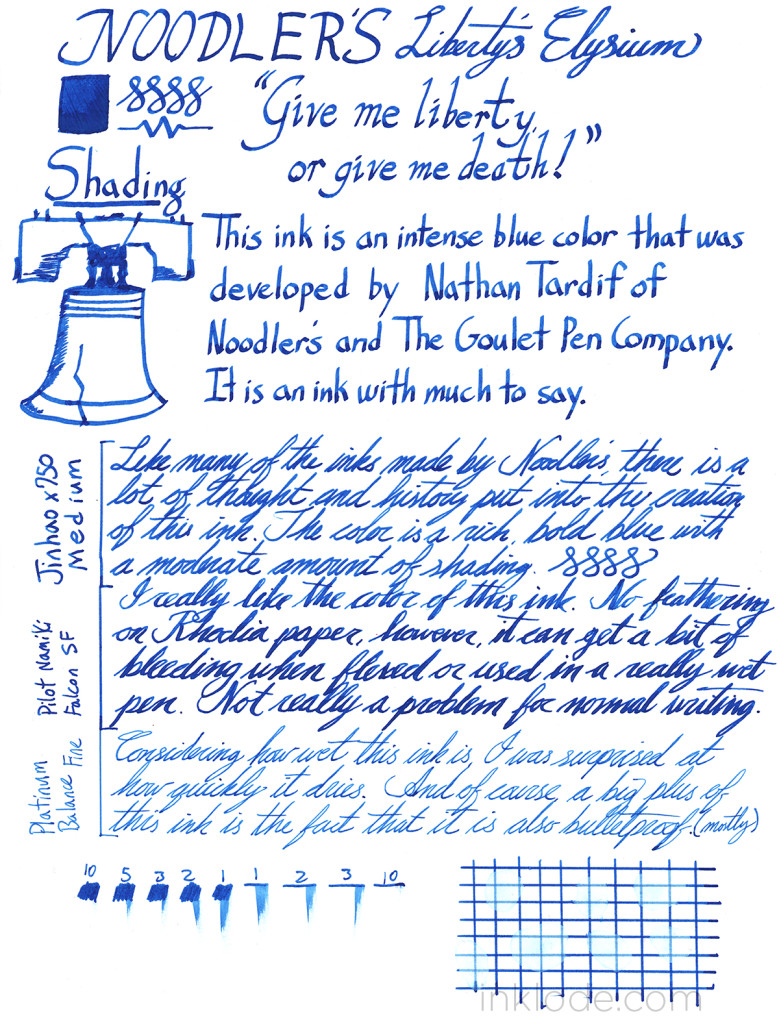 NOODLER'S Liberty's Elysium
"Give me liberty,
or give me death!"
Shading
This ink is an intense blue color that was
developed by Nathan Tardif of
Noodler's and The Goulet Pen Company.
It is an ink with much to say.
Jinhao x750
Medium
Like many of the inks made by Noodler's, there is a
lot of thought and history put into the creation
of this ink. The color is a rich, bold blue with
a moderate amount of shading.
Pilot Namiki
Falcon SF
I really like the color of this ink. No feathering
on Rhodia paper, however, it can get a bit of
bleeding when flexed or used in a really wet
pen. Not really a problem for normal writing.
Platinum
Balance Fine
Considering how wet this ink is, I was surprised at
how quickly it dries. And of course, a big plus of
this ink is the fact that it is also bulletproof. (mostly)
10 5 3 2 1 1 2 3 10
inklode.com